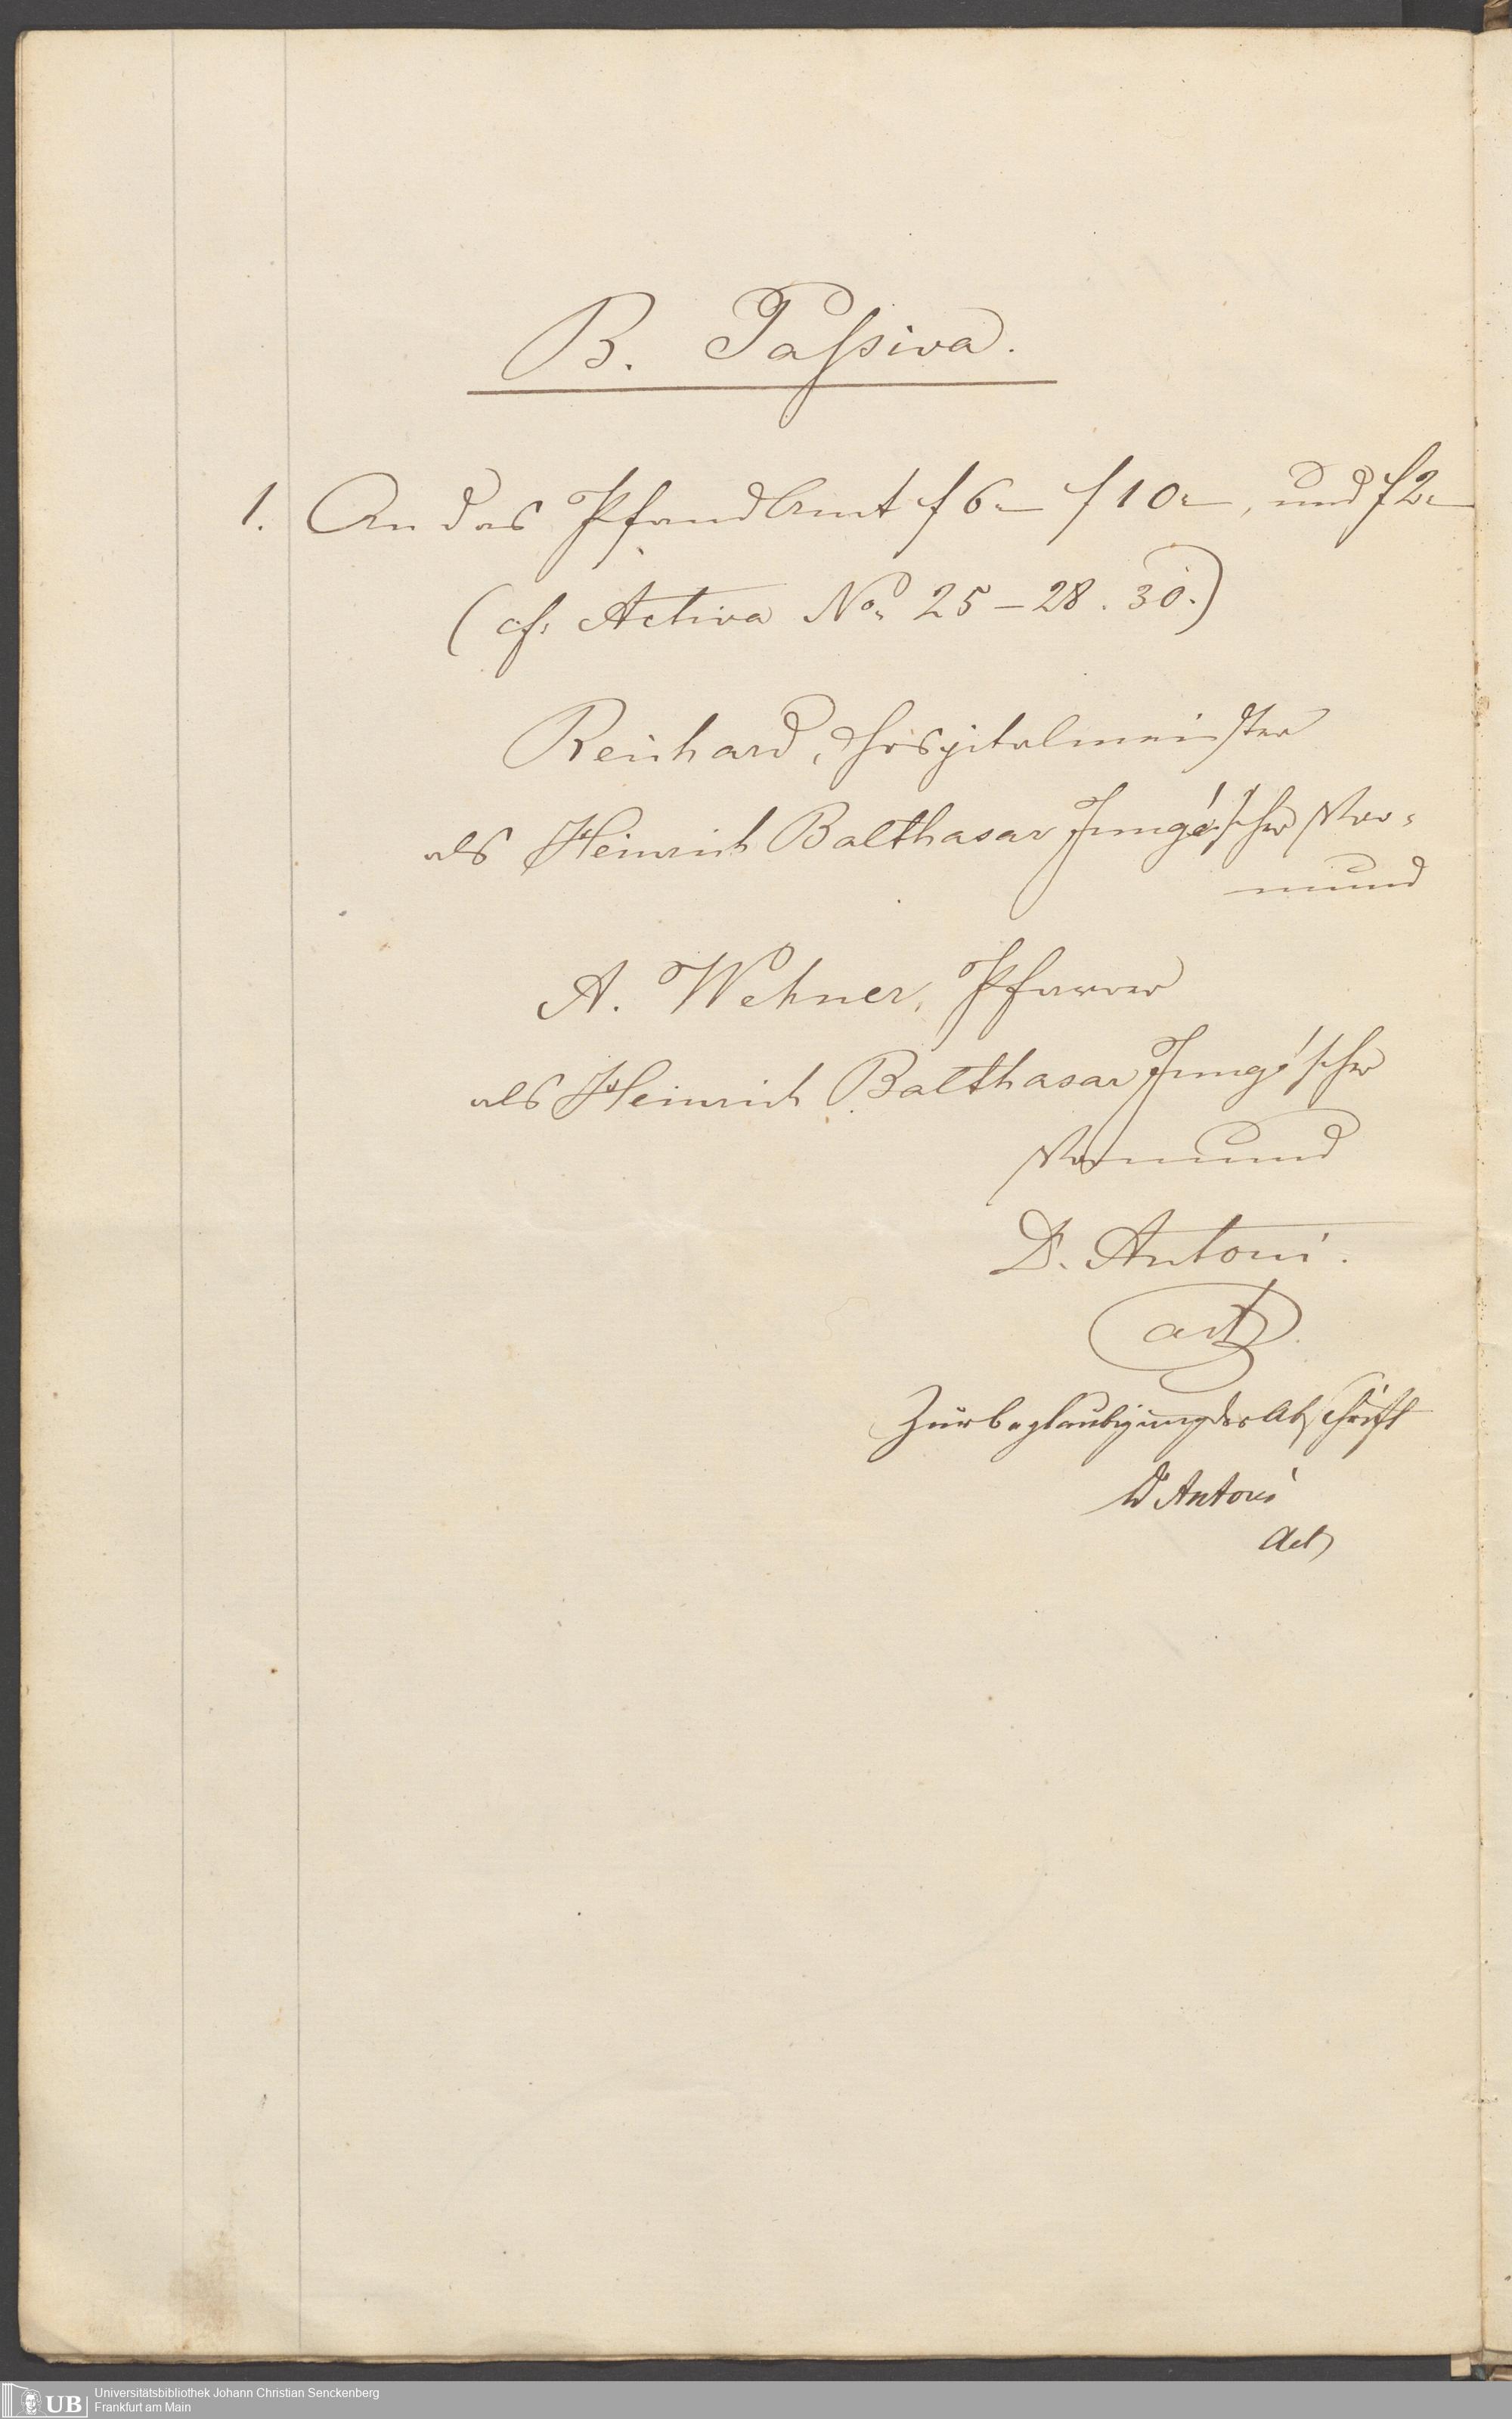 B. Passiva.
1. An das PfandAmt f 6.— f 10.—, und f 2.—
(cf. Activa No. 25–28. 30.)
Reinhard, Hospitalmeister
als Heinrich Balthasar Junge'scher Vor-
mund
A. Wehner, Pfarrer
als Heinrich Balthasar Jung'scher
Vormund
Dr. Antoni.
act.
Zur Beglaubigung der Abschrift
Dr Antoni
Act
Universitätsbibliothek Johann Christian Senckenberg
Frankfurt am Main
UB